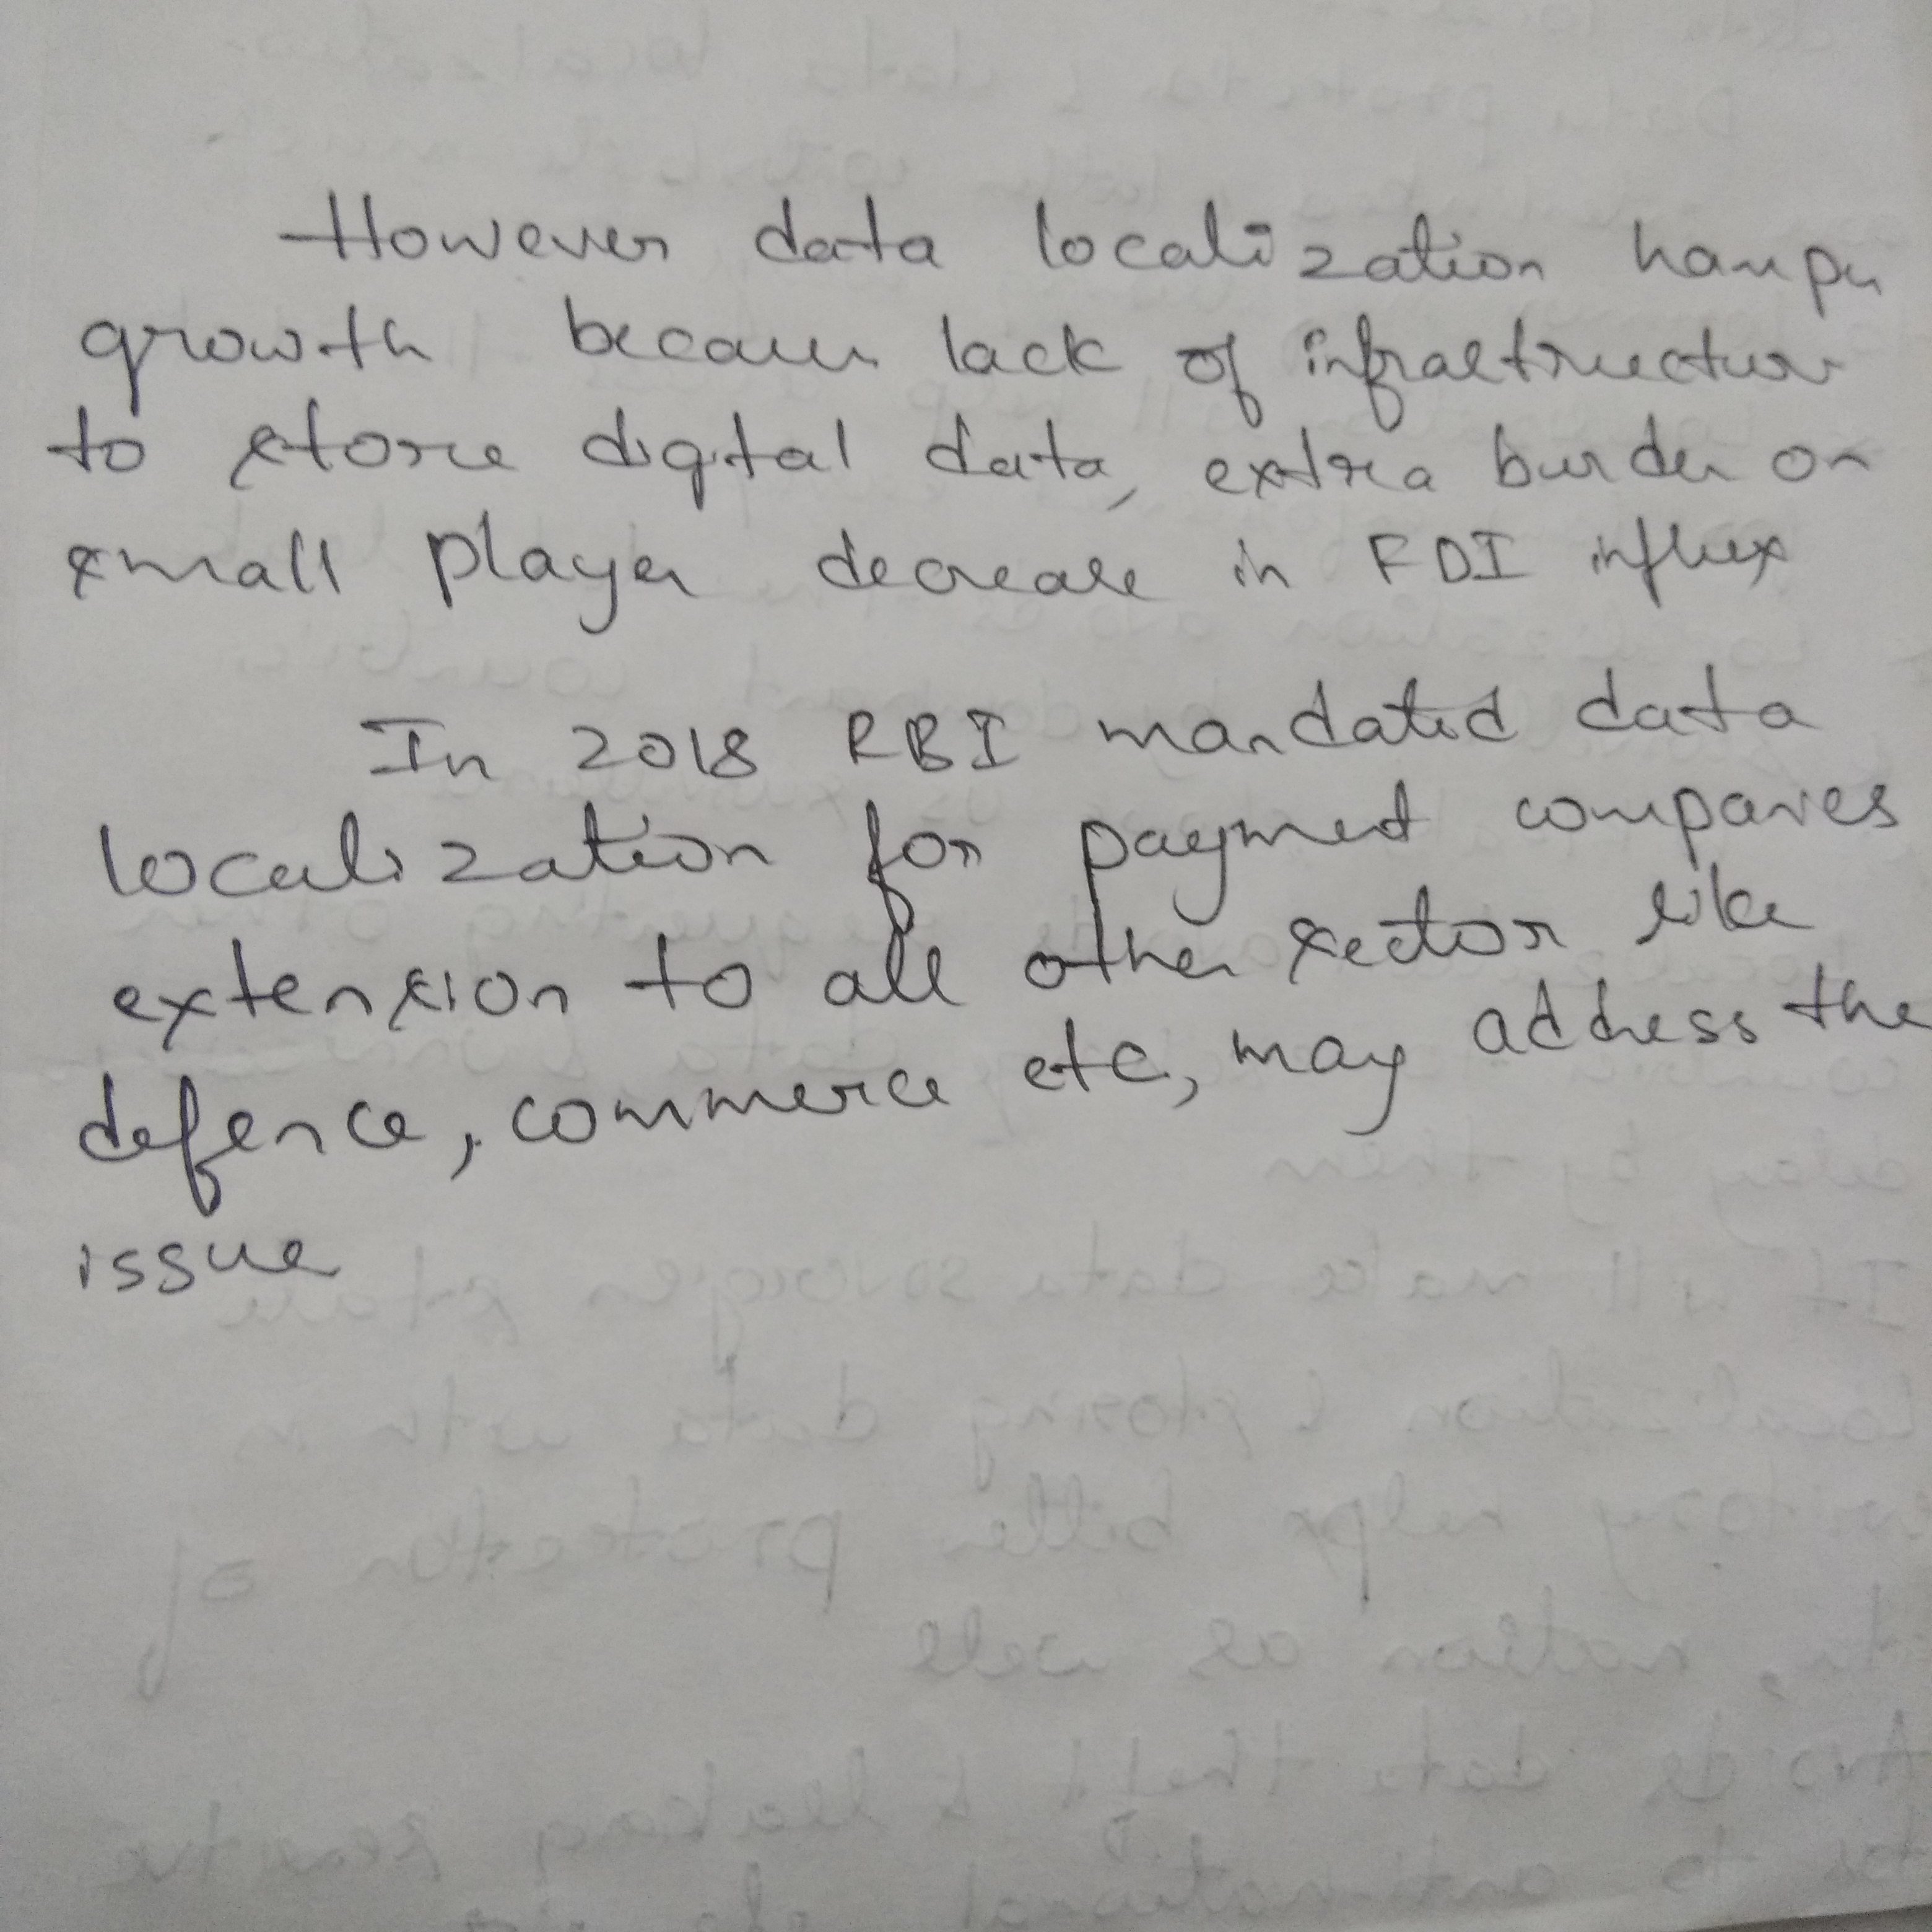 However data localization hamper
growth because lack of infrastructure
to store digital data, extra burden on
small player decrease in FDI influx
In 2018 RBI mandated data
localization for payment companies
extension to all other sector like
defence, commerce etc, may address the
issue